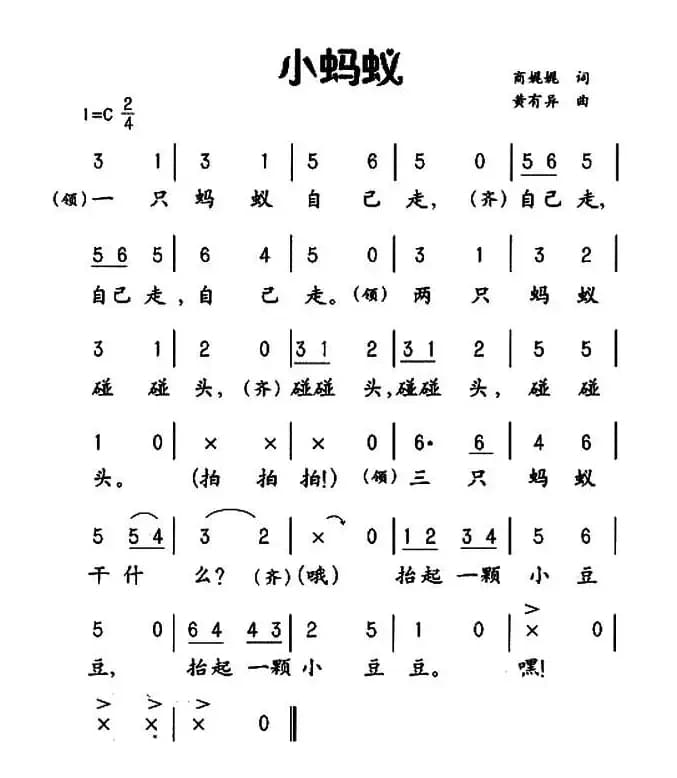 小蚂蚁
商娓娓 词
1=C 2/4
黄有异 曲
3 1 | 3 1 | 5 6 | 5 0 | 5 6 5 |
(领)一 只 蚂 蚁 自 己 走, (齐)自己走,
5 6 5 | 6 4 | 5 0 | 3 1 | 3 2 |
自己走,自 己 走。(领)两 只 蚂 蚁
3 1 | 2 0 | 3 1 2 | 3 1 2 | 5 5 |
碰 碰 头, (齐)碰碰 头,碰碰 头, 碰 碰
1 0 | × × | × 0 | 6· 6 | 4 6 |
头。 (拍 拍 拍!) (领)三 只 蚂 蚁
5 5 4 | 3 2 | × 0 | 1 2 3 4 | 5 6 |
干 什 么? (齐)(哦) 抬起 一颗 小 豆
5 0 | 6 4 4 3 | 2 5 | 1 0 | × 0 |
豆, 抬起 一颗 小 豆 豆。 嘿!
× × | × 0 ‖